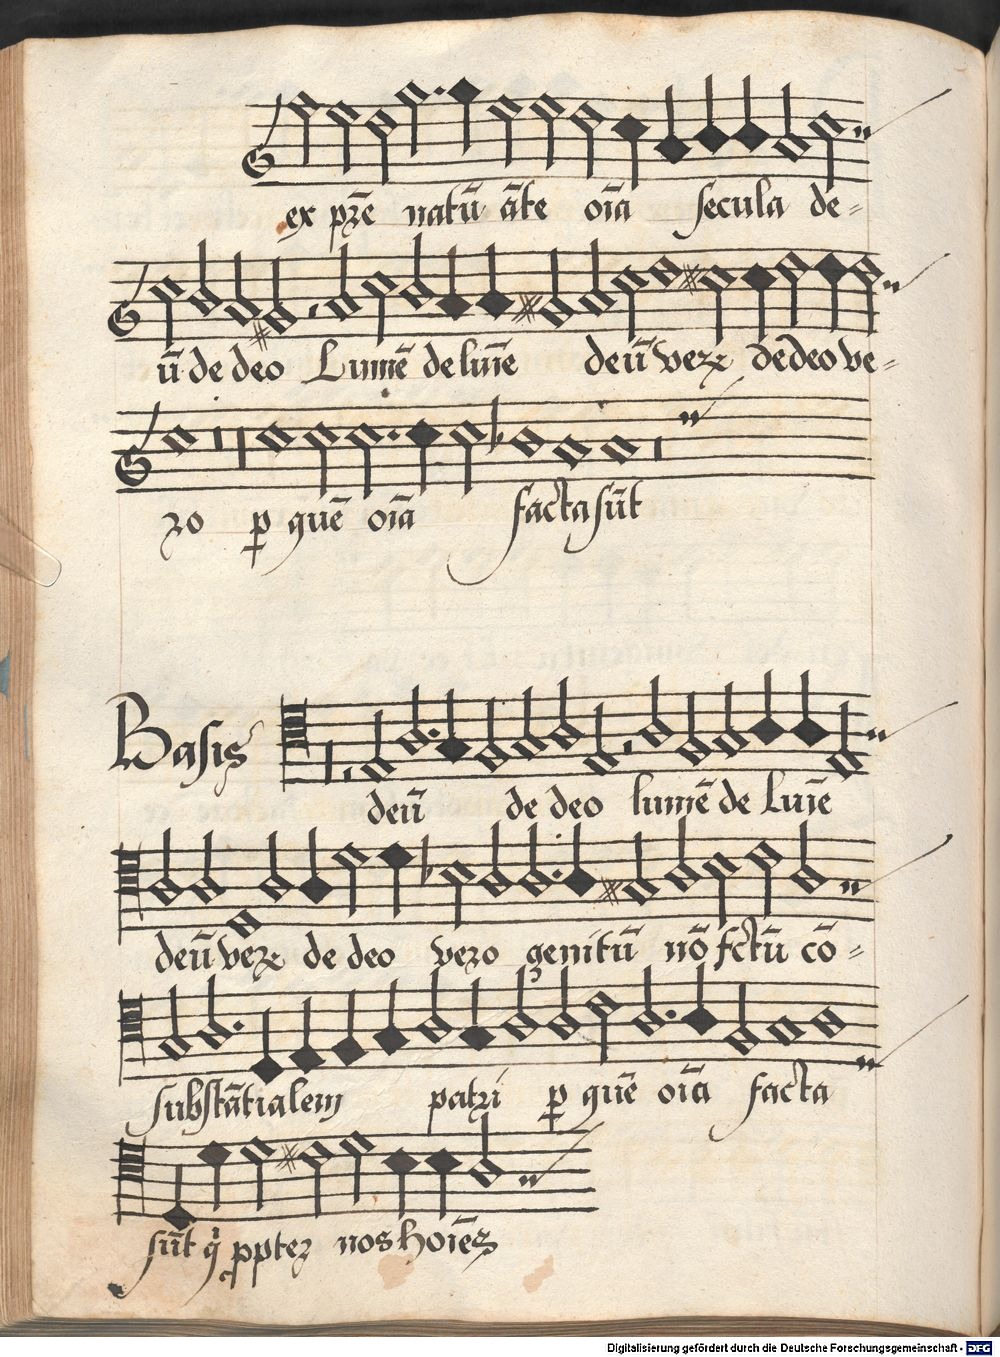 ex pr̄e natū ān̄te oīa secula de=
ū de deo Lumē de lūie deū vere de deo ve=
ro p quē oīa facta sūt
Basis
deū de deo lumē de Lūie
deū vere de deo vero genitū nō fctū cō=
substātialem patri p quē oīa facta
sūt q̄ ppter nos hoīes
Digitalisierung gefördert durch die Deutsche Forschungsgemeinschaft - DFG